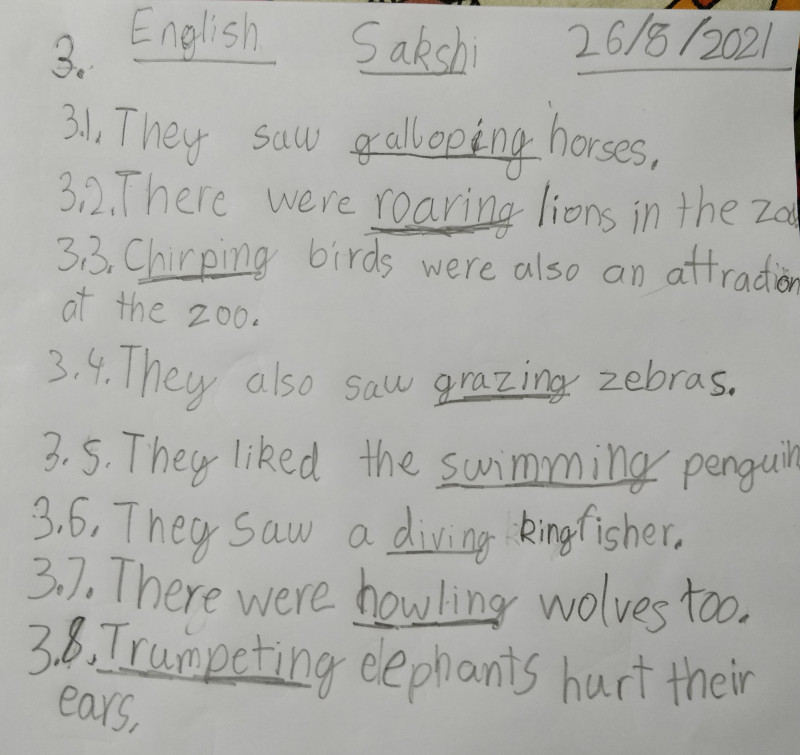 English Sakshi 26/8/2021
3.
3.1. They saw galloping horses.
3.2. There were roaring lions in the zoo
3.3. Chirping birds were also an attraction
at the zoo.
3.4. They also saw grazing zebras.
3.5. They liked the swimming penguin
3.6. They saw a diving kingfisher.
3.7. There were howling wolves too.
3.8. Trumpeting elephants hurt their
ears.